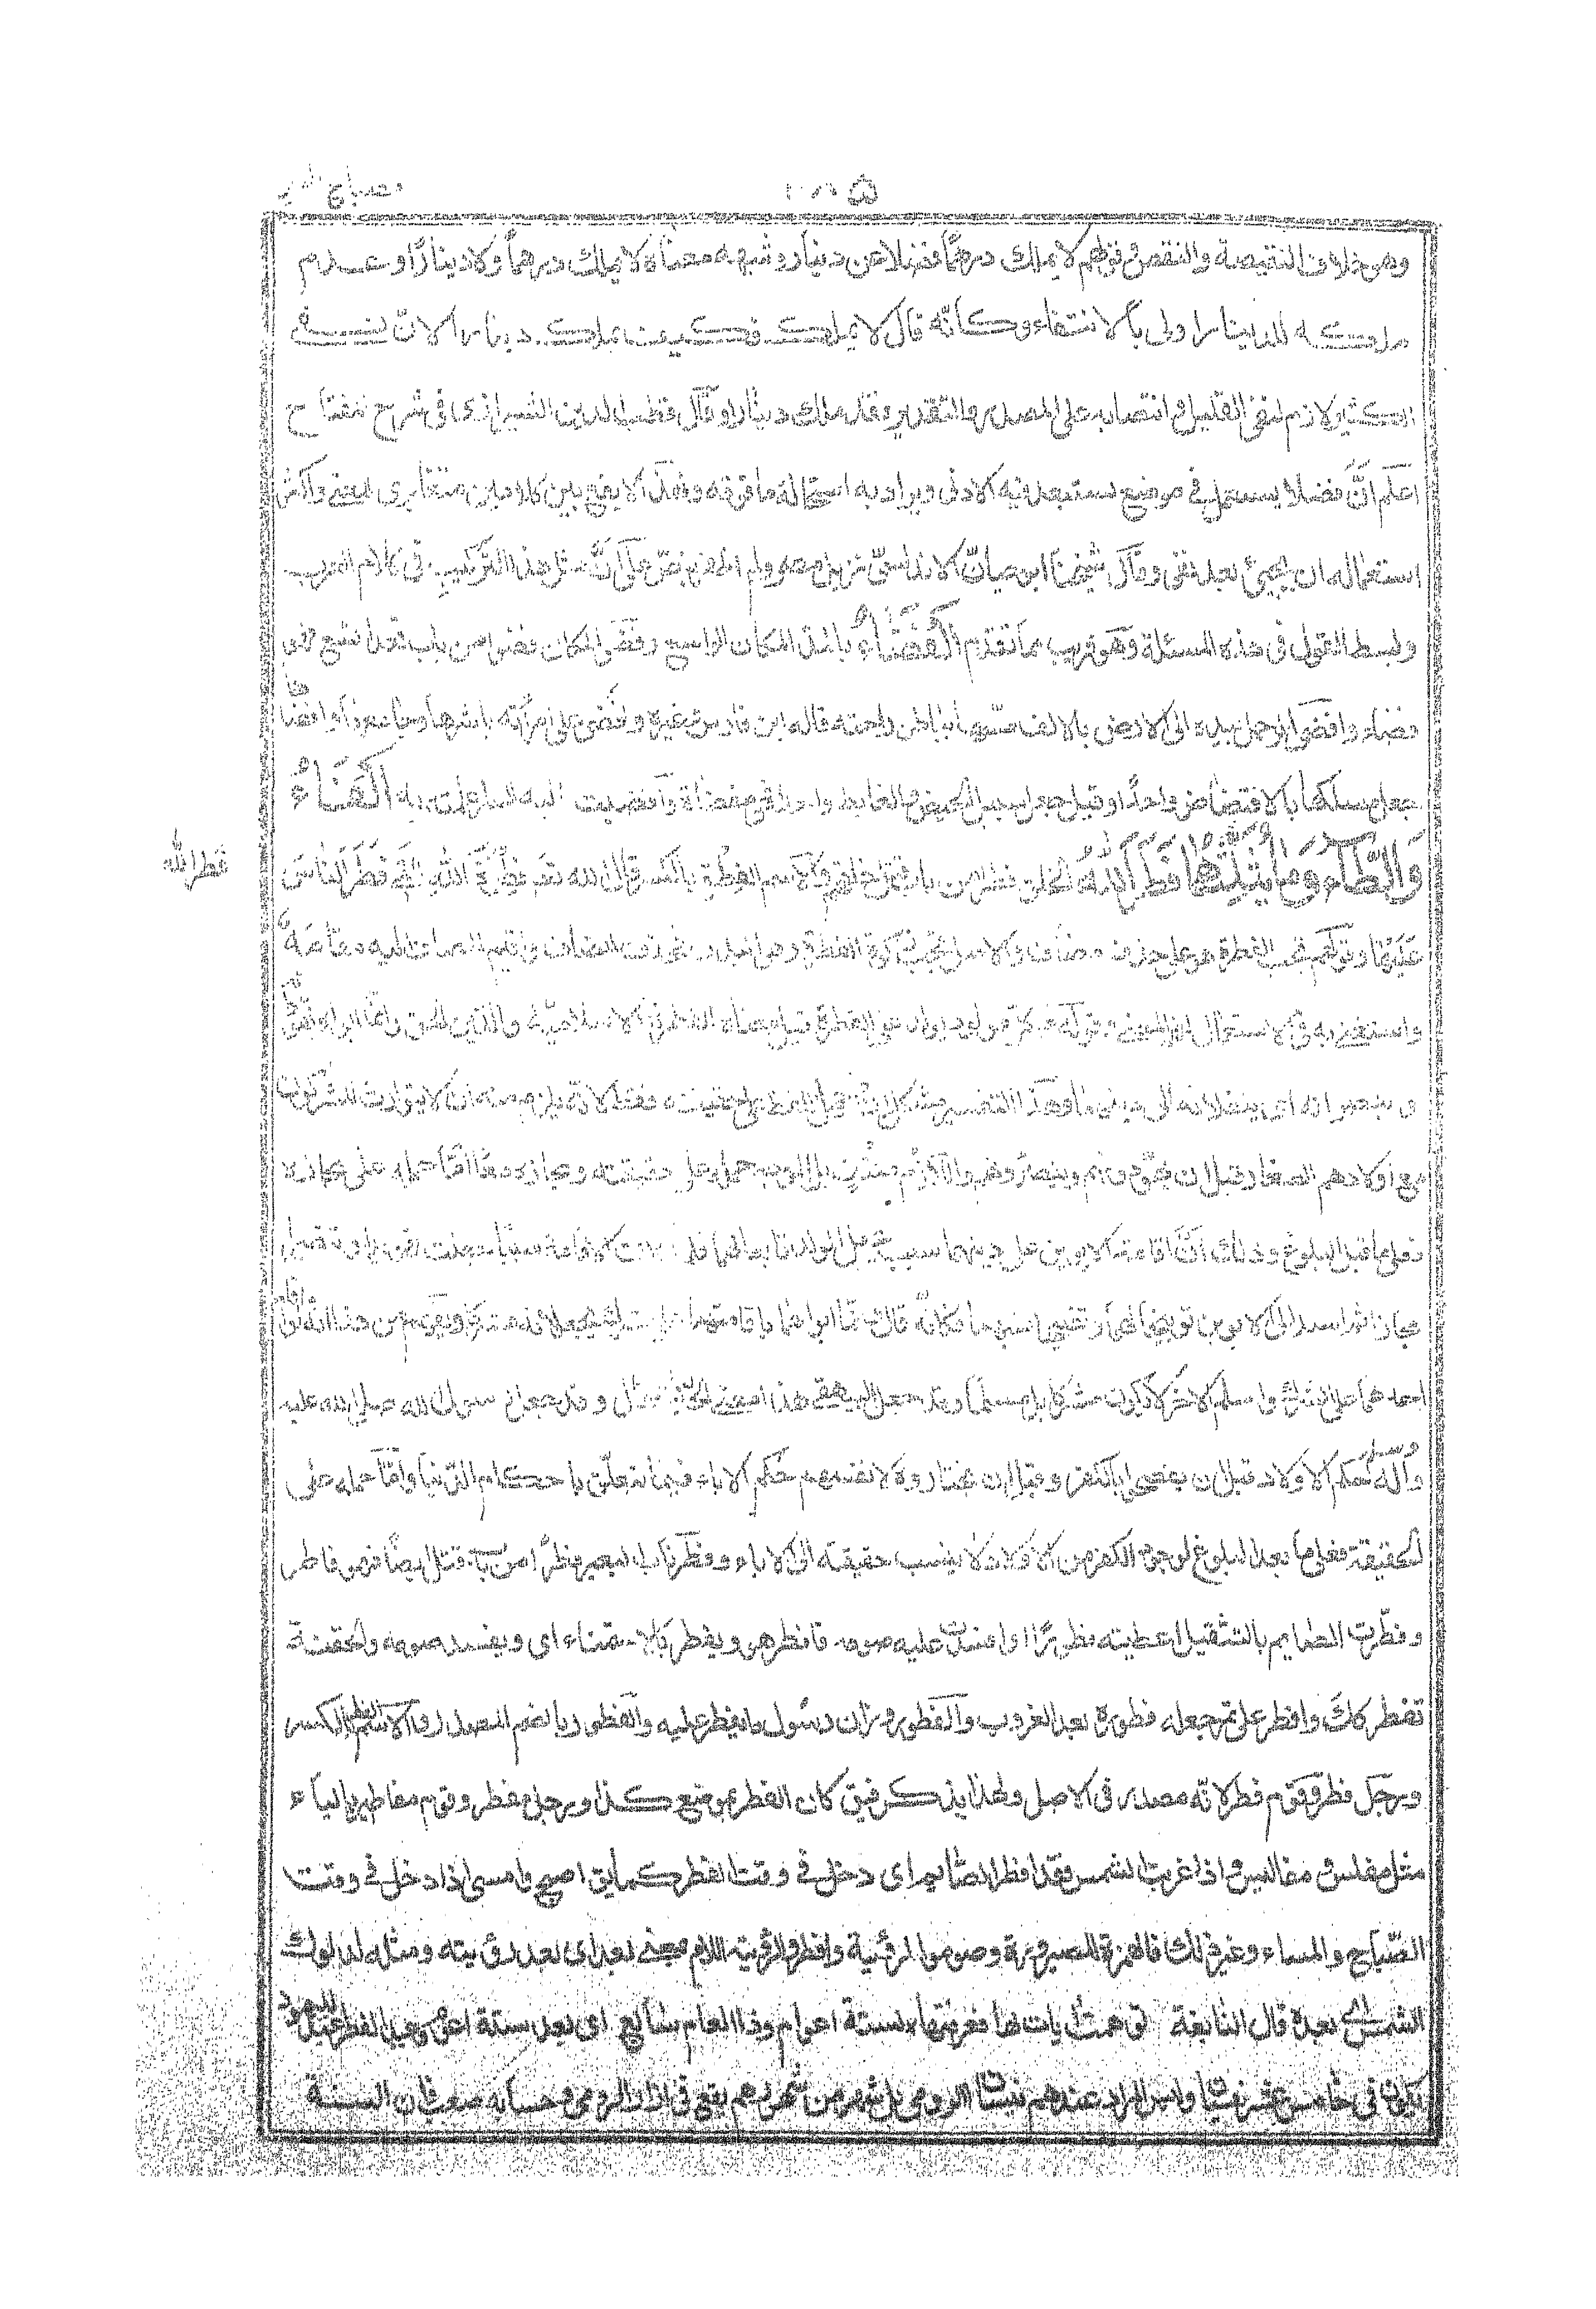 مصباح
وهو خلاف النقيصة والنقص وقولهم لا يملك درهمًا فضلا عن دينار وشبهه معناه لا يملك درهمًا ولا دينارًا وعدم
ملكه للدينار اولى بالانتفاء وكانّه قال لا يملك فكيف يملك دينارا لانّ نفى
الكثير لازم لنفى القليل وانتصابه على المصدر والتقدير وقد ملك دينارا وقال قطب الدين الشيرازى فى شرح مفتاح
اعلم انّ فضلا يستعمل فى موضع يستبعد فيه الادنى ويراد به استحالة ما فوقه ولهذا يقع بين كلامين متغايرى المعنى واكثر
استعماله ان يجيئ بعد نفى وقال شيخنا ابو حيان الاندلسى نزيل مصر ولم اظفر بنص على انّ مثل هذا التركيب فى كلام العرب
وبسط القول فى هذه المسئلة وهو قريب مما تقدم الفضاء بالمد المكان الواسع وفضى المكان فضوا من باب قعد اتسع فهو
فضاء وافضى الرجل بيده الى الارض بالالف مسّها بباطن راحته قاله ابن فارس وغيره وافضى الى امرأته باشرها وجامعها وافضاها
جعل مسلكها بالافتضاض واحدًا وقيل جعل سبيل الحيض والغايط واحدا فهى مفضاة وافضيت اليه بالسر اعلمته به الفاء
والطاء وما يثلثهما فطر الله الخلق فطرا من باب قتل خلقهم والاسم الفطرة بالكسر قال الله تعم فطرة الله التى فطر الناس
فطر الله
عليها وقولهم تجب الفطرة هو على حذف مضاف والاصل تجب زكوة الفطرة وهى البدن فحذف المضاف واقيم المضاف اليه مقامه
واستغنى به فى الاستعمال لفهم المعنى وقوله كل مولود يولد على الفطرة قيل معناه الفطرة الاسلامية والدين الحق وانما ابواه يهودانه
وينصرانه اى ينقلانه الى دينهما وهذا التفسير مشكل ان حمل اللفظ على حقيقته فقط لانه يلزم منه ان لا يتوارث المشركون
مع اولادهم الصغار قبل ان يهودوهم وينصروهم واللازم منتف بل الوجه حمله على حقيقته ومجازه معا امّا حمله على مجازه
فعلى ما قبل البلوغ وذلك انّ اقامة الابوين على دينهما سبب يجعل الولد تابعا لهما فلما كانت الاقامة سببًا جعلت تهويدا وتنصيرا
مجازا ثم اسند الى الابوين توبيخا لهما وتقبيحا عليهما فكانه قال وانما ابواه باقامتهما على الشرك يجعلانه مشركا ويفهم من هذا انه لو اقام
احدهما على الشرك واسلم الاخر لا يكون مشركا بل مسلما وقد جعل البيهقى هذا معنى الحديث فقال وقد جعل رسول الله صلى الله عليه
وآله وسلم حكم الاولاد قبل ان يفصحوا بالكفر وقبل ان يختاروه لانفسهم حكم الاباء فيما يتعلق باحكام الدّنيا وامّا حمله على
الحقيقة فعلى ما بعد البلوغ لوجود الكفر من الاولاد لا ينسب حقيقته الى الاباء وفطر ناب البعير فطرًا من باب قتل ايضًا فهو فاطر
وفطّرت الصايم بالتثقيل اعطيته فطورًا او افسدت عليه صومه فافطر هو ويفطر بالاستمناء اى ويفسد صومه والحقنة
تفطر كك وافطر على تمر جعله فطوره بعد الغروب والفطور وزان رسول ما يفطر عليه والفطور بالضم المصدر والاسم الفطر بالكسر
ورجل فطر وقوم فطر لانه مصدر فى الاصل ولهذا يذكر فيق كان الفطر بموضع كذا ورجل مفطر وقوم مفاطير بالياء
مثل مفلس ومفاليس واذا غربت الشمس فقد افطر الصّايم اى دخل فى وقت الفطر كما يق اصبح وامسى اذا دخل فى وقت
الصّباح والمساء وغير ذلك فالهمزة للصيرورة وصوموا لرؤيته وافطروا لرؤيته اللام بمعنى بعد اى بعد رؤيته ومثله لدلوك
الشمس اى بعده قال النابغة توهمت ايات لها فعرفتها لستة اعوام وذا العام سابع اى بعد ستة اعوام وعيد الفطير عيد لليهود
يكون فى خامس عشر نيسان وليس المراد عندهم نيسان الرومى بل شهر من شهورهم يقع فى اذار الرومى وحسابه صعب فان السنة